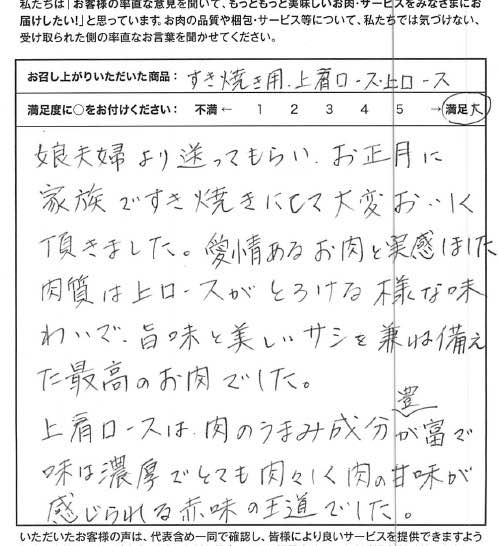 私たちは「お客様の率直な意見を聞いて、もっともっと美味しいお肉・サービスをみなさまにお
届けしたい!」と思っています。お肉の品質や梱包・サービス等について、私たちでは気づけない、
受け取られた側の率直なお言葉を聞かせてください。
お召し上がりいただいた商品： すき焼き用、上肩ロース・上ロース
満足度に○をお付けください： 不満 ← 1 2 3 4 5 → 満足 大
娘夫婦より送ってもらい、お正月に
家族ですき焼きにして大変おいしく
頂きました。愛情あるお肉と実感しました
肉質は上ロースがとろける様な味
わいで、旨味と美しいサシを兼ね備え
た最高のお肉でした。
上肩ロースは、肉のうまみ成分が豊富で
味は濃厚でとても肉々しく肉の甘味が
感じられる赤味の王道でした。
いただいたお客様の声は、代表含め一同で確認し、皆様により良いサービスを提供できますよう